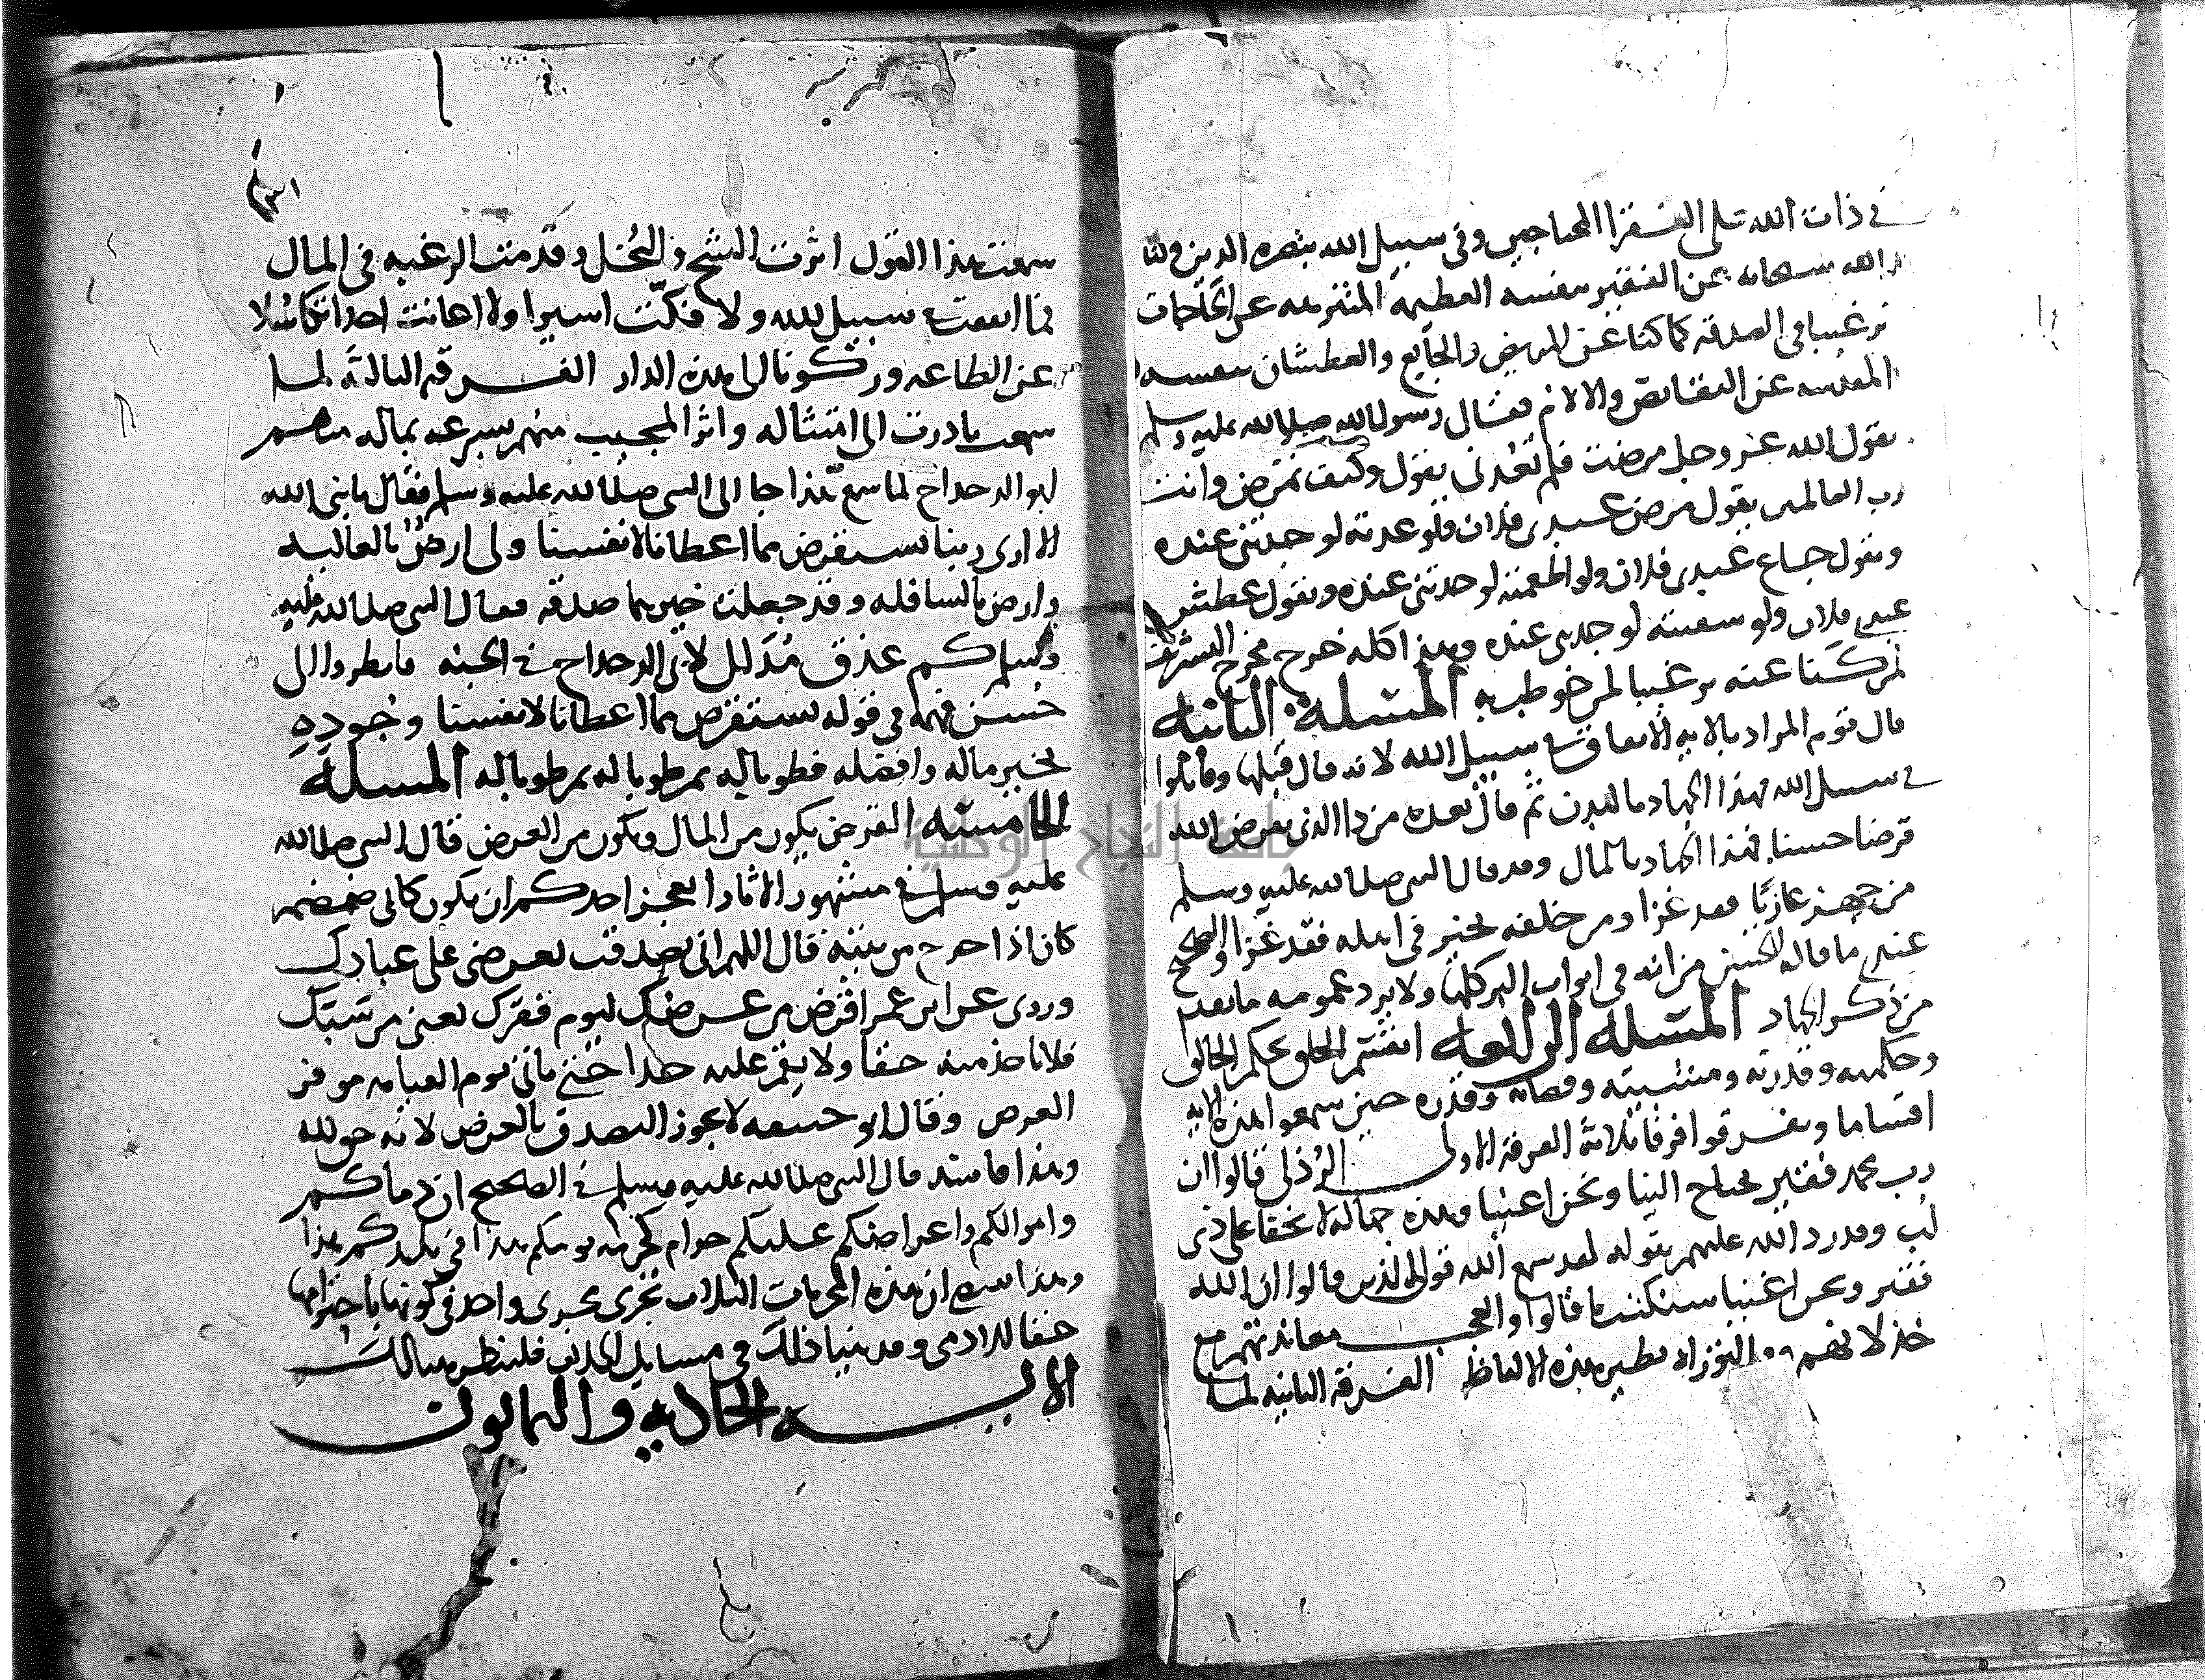 في ذات الله تعلى الفقرا المحتاجين وفي سبيل الله بنصره الدين وكنا
الله سبحانه عن الفقير بنفسه العظيمة المنزهه عن الحاجات
ترغيبا في الصدقه كما كنا عن المريض والجايع والعطشان بنفسه
المقدسه عن النقايص والالام فقال رسول الله صلى الله عليه وسلم
يقول الله عز وجل مرضت فلم تعدني يقول وكيف تمرض وانت
رب العالمين يقول مرض عبدي فلان فلو عدته لوجدتني عنده
ويقول جاع عبدي فلان ولو اطعمته لوجدتني عنده ويقول عطش
عبدي فلان ولو سقيته لوجدتني عنده وهذا كله خرج مخرج التشريف
لمن كنا عنه ترغيبا لمن خوطب به المسلة الثانيه
قال قوم المراد بالايه الانفاق في سبيل الله لانه قال قبلها وقاتلوا
في سبيل الله فهذا الجهاد بالبدن ثم قال بعده من ذا الذي يقرض الله
قرضا حسنا فهذا الجهاد بالمال وقد قال النبي صلى الله عليه وسلم
من جهز غازيا فقد غزا ومن خلفه بخير في اهله فقد غزا والصحيح
عندي ما قاله الحسن من انه في ابواب البر كلها ولا يرد عمومه ما تقدم
من ذكر الجهاد المسلة الرابعه انقسم الخلق بحكم الخالق
وحكمته وقدرته ومشيئته وقضائه وقدره حين سمعوا هذه الايه
اقساما وتفرقوا فرقا ثلاثة الفرقة الاولى الرذلى قالوا ان
رب محمد فقير محتاج الينا ونحن اغنيا وهذه جهالة لا تخفا على ذي
لب وقد رد الله عليهم بقوله لقد سمع الله قول الذين قالوا ان الله
فقير ونحن اغنيا سنكتب ما قالوا والعجب معاندتهم مع
خذلانهم وفي التوراه نظير هذه الالفاظ الفرقه الثانيه لما
سمعت هذا القول اثرت الشح والبخل وقدمت الرغبه في المال
فما انفقت في سبيل الله ولا فكت اسيرا ولا اعانت احدا تكاسلا
عن الطاعه وركونا الى هذه الدار الفرقه الثالثة لما
سمعت بادرت الى امتثاله واثر المجيب منهم بسرعه بماله منهم
ابو الدحداح لما سمع هذا جا الى النبي صلى الله عليه وسلم فقال يا نبي الله
الا ارى ربنا يستقرض مما اعطانا لانفسنا ولي ارض بالعاليه
وارض بالسافله وقد جعلت خيرهما صدقه فقال النبي صلى الله عليه
وسلم كم عذق مذلل لابي الدحداح في الجنه فانظروا الى
حسن فهمه في قوله يستقرض مما اعطانا لانفسنا وجوده
بخير ماله وافضله فطوبا له ثم طوبا له ثم طوبا له المسلة
الخامسه القرض يكون من المال ويكون من العرض قال النبي صلى الله
عليه وسلم في مشهور الاثار ايعجز احدكم ان يكون كابي ضمضم
كان اذا خرج من بيته قال اللهم اني تصدقت بعرضي على عبادك
وروى عن ابن عمر اقرض من عرضك ليوم فقرك يعني من سبك
فلا تاخذ منه حقا ولا تقم عليه حدا حتى تاتي يوم القيامه موفر
العرض وقال ابو حنيفه لا يجوز التصدق بالعرض لانه حق لله
وهذا فاسد قال النبي صلى الله عليه وسلم في الصحيح ان دماكم
واموالكم واعراضكم عليكم حرام كحرمه يومكم هذا في بلدكم هذا
وهذا يقتضي ان هذه المحرمات الثلاث تجري مجرى واحد في كونها باحترامها
حقا للادمي وقد بينا ذلك في مسايل الخلاف فلينظر هنالك
الايـــــــة الحاديه والثمانون
جامعة النجاح الوطنية